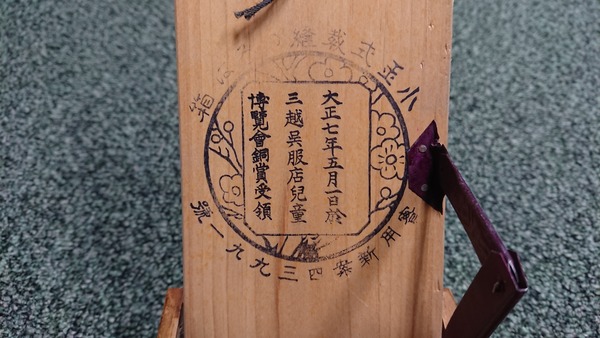 小正式裁縫
箱
大正七年五月一日於
三越呉服店兒童
博覽會銅賞受領
實用新案四三九九一號